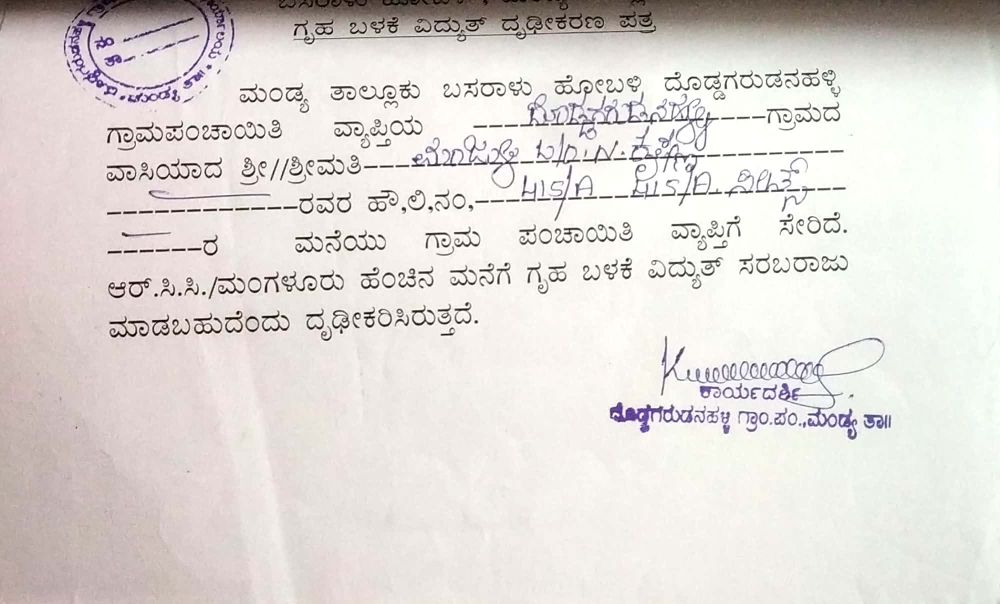 ಗೃಹ ಬಳಕೆ ವಿದ್ಯುತ್ ದೃಢೀಕರಣ ಪತ್ರ
ಮಂಡ್ಯ ತಾಲ್ಲೂಕು ಬಸರಾಳು ಹೋಬಳಿ ದೊಡ್ಡಗರುಡನಹಳ್ಳಿ
ಗ್ರಾಮಪಂಚಾಯಿತಿ ವ್ಯಾಪ್ತಿಯ ----ದೊಡ್ಡಗರುಡನಹಳ್ಳಿ----ಗ್ರಾಮದ
ವಾಸಿಯಾದ ಶ್ರೀ//ಶ್ರೀಮತಿ----
-------------ರವರ ಹೌ,ಲಿ,ನಂ,---415/A 415/A
------ರ ಮನೆಯು ಗ್ರಾಮ ಪಂಚಾಯಿತಿ ವ್ಯಾಪ್ತಿಗೆ ಸೇರಿದೆ.
ಆರ್.ಸಿ.ಸಿ./ಮಂಗಳೂರು ಹೆಂಚಿನ ಮನೆಗೆ ಗೃಹ ಬಳಕೆ ವಿದ್ಯುತ್ ಸರಬರಾಜು
ಮಾಡಬಹುದೆಂದು ದೃಢೀಕರಿಸಿರುತ್ತದೆ.
ಕಾರ್ಯದರ್ಶಿ
ದೊಡ್ಡಗರುಡನಹಳ್ಳಿ ಗ್ರಾಂ.ಪಂ.,ಮಂಡ್ಯ ತಾ॥